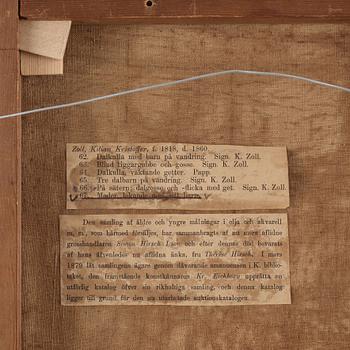 Zoll, Kilian Kristoffer, f. 1818, d. 1860.
62. Dalkulla med barn på vandring. Sign. K. Zoll.
63. Blind tiggargubbe och gosse. Sign. K. Zoll.
64. Dalkulla, vaktande getter. Papp.
65. Tre dalbarn på vandring. Sign. K. Zoll.
66. På sätern; dalgosse och -flicka med get. Sign. K. Zoll.
67. Moder, lekande med sitt barn.
Den samling af äldre och yngre målningar i olja och akvarell
m. m., som härmed försäljes, har sammanbragts af nu mera aflidne
grosshandlaren Simon Hirsch Leon och efter dennes död bevarats
af hans äfvenledes nu aflidna änka, fru Thérèse Hirsch. I mars
1879 lät samlingens ägare genom dåvarande amanuensen i K. biblio-
teket, den framstående konstkännaren Kr. Eichhorn upprätta en
utförlig katalog öfver sin rikhaltiga samling, och denna katalog
ligger till grund för den nu utarbetade auktionskatalogen.